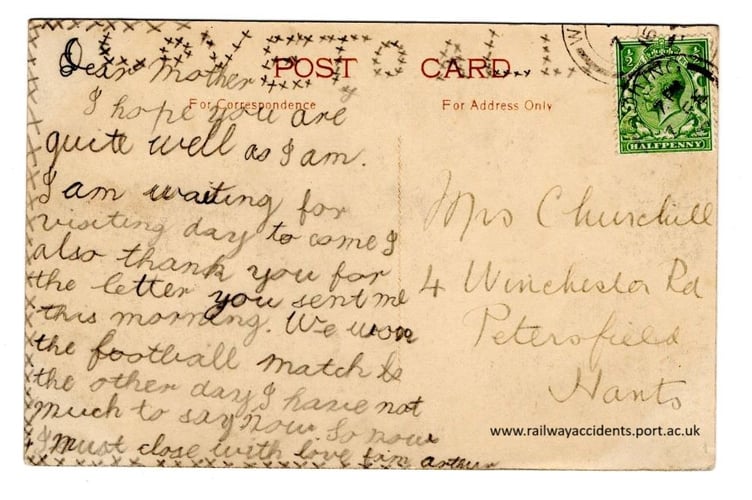 POST CARD
For Correspondence
For Address Only
Dear Mother
I hope you are
quite well as I am.
I am waiting for
visiting day to come I
also thank you for
the letter you sent me
this morning. We won
the football match
the other day I have not
much to say now so now
I must close with love from Arthur
Mrs Churchill
4 Winchester Rd
Petersfield
Hants
½
½
HALFPENNY
www.railwayaccidents.port.ac.uk